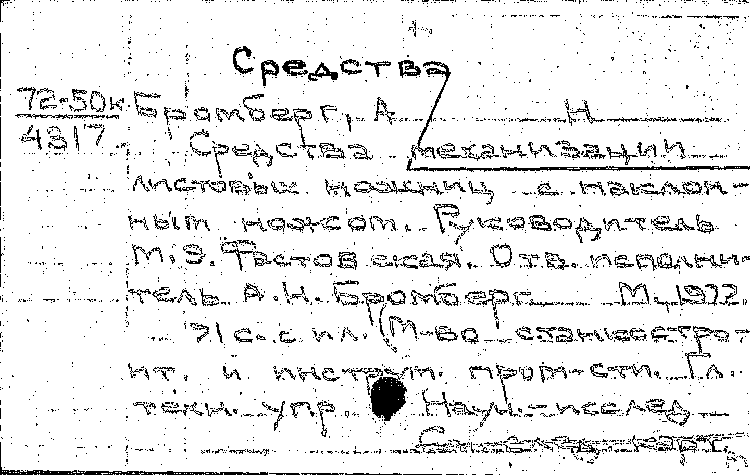 Средства
72-50к Бромберг, А Н
4317 Средства механизации
листовых ножниц с наклон-
ным ножом. Руководитель
М.Э. Фастовская. Отв. исполни-
тель А.Н. Бромберг М., 1972.
71 с. с ил. (М-во станкостро-
ит. и инструм. пром-сти. Гл.
техн. упр. Науч.-исслед
См. след. карт.